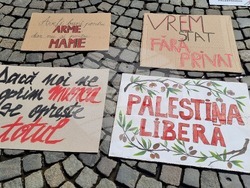 ARME
MAME
VREM
STAT
FĂRĂ
PRIVAT
Dacă noi ne
oprim munca
se oprește
totul
PALESTINA
LIBERĂ